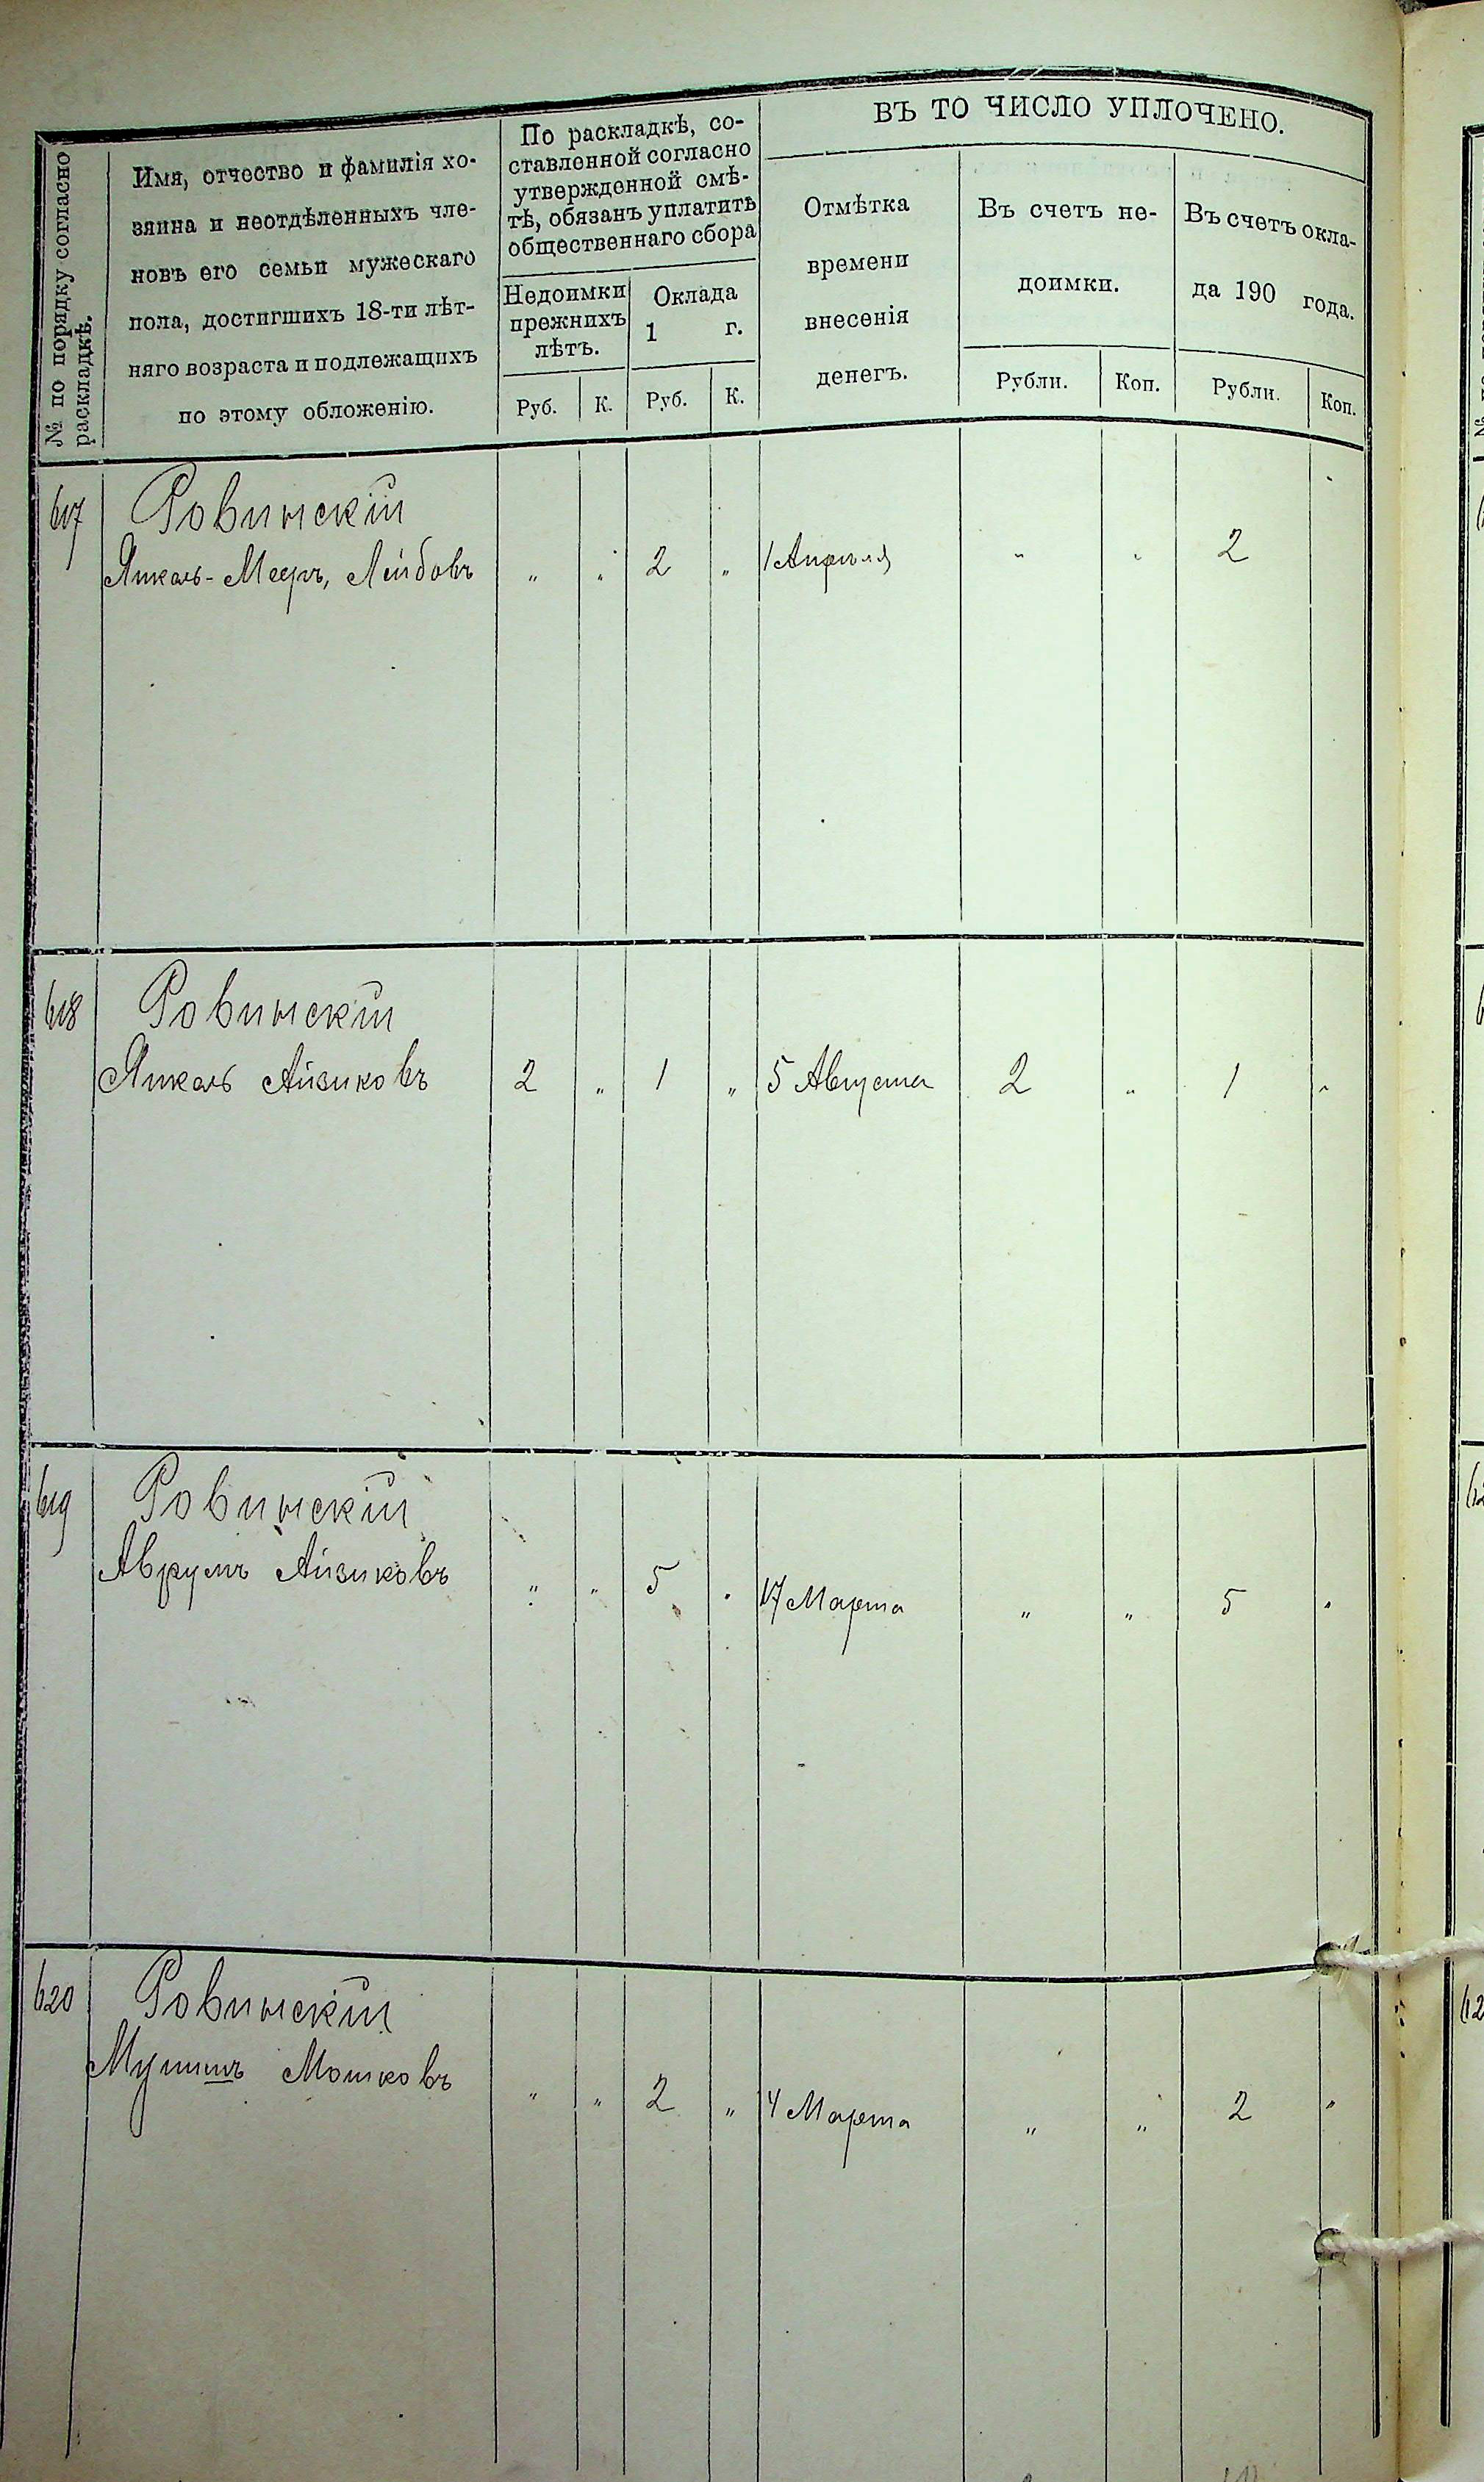 № по порядку согласно
раскладкѣ.
Имя, отчество и фамилія хо-
зяина и неотдѣленныхъ чле-
новъ его семьи мужескаго
пола, достигшихъ 18-ти лѣт-
няго возраста и подлежащихъ
по этому обложенію.
По раскладкѣ, со-
ставленной согласно
утвержденной смѣ-
тѣ, обязанъ уплатить
общественнаго сбора
Недоимки
прежнихъ
лѣтъ.
Оклада
1 г.
Руб. К. Руб. К.
ВЪ ТО ЧИСЛО УПЛОЧЕНО.
Отмѣтка
времени
внесенія
денегъ.
Въ счетъ не-
доимки.
Рубли. Коп.
Въ счетъ окла-
да 190 года.
Рубли. Коп.
617 Ровинскій
Янкель-Мееръ, Лейбовъ „ „ 2 „ 1 Апрѣля „ „ 2
618 Ровинскій
Янкель Айзиковъ 2 „ 1 „ 5 Августа 2 „ 1 „
619 Ровинскій
Аврумъ Айзиковъ „ „ 5 „ 17 Марта „ „ 5 „
620 Ровинскій
Мошковъ „ „ 2 „ 4 Марта „ „ 2 „